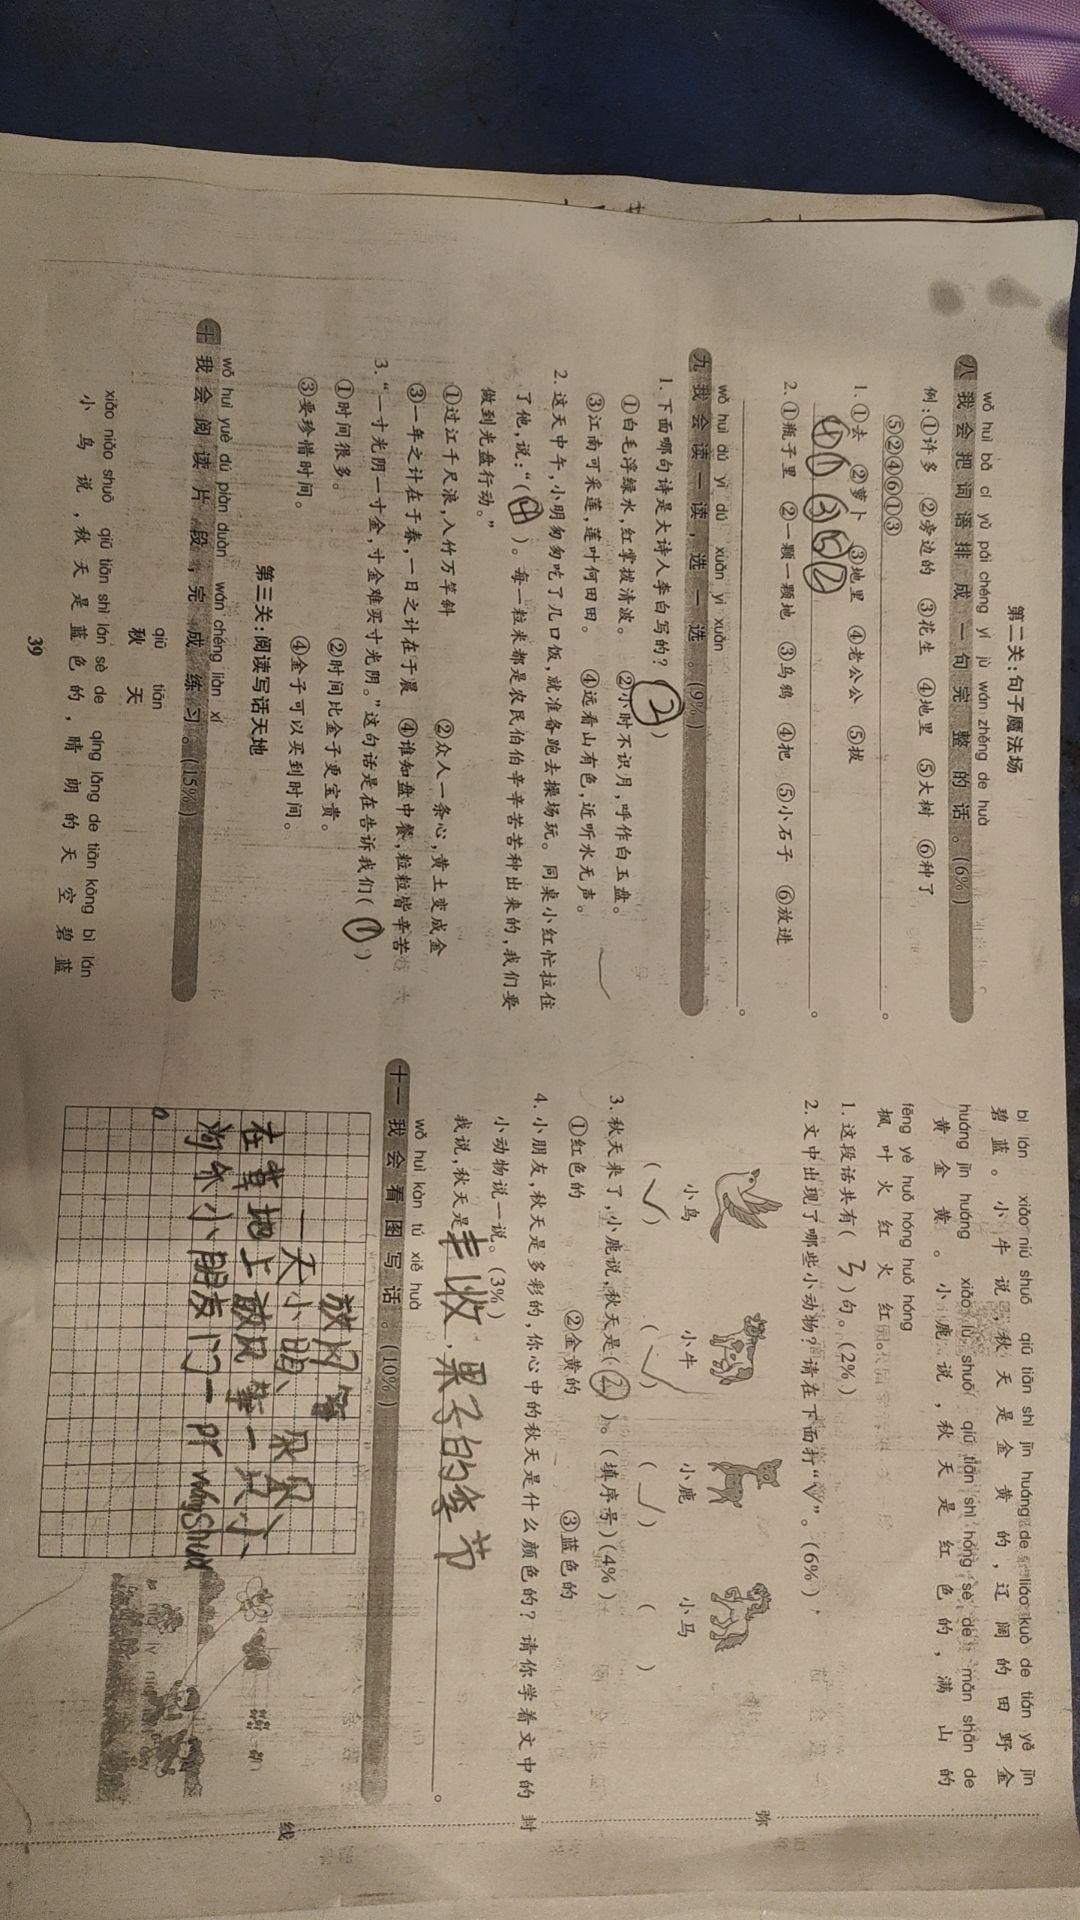 第二关:句子魔法场
wǒ huì bǎ cí yǔ pái chéng yí jù wán zhěng de huà
八 我会把词语排成一句完整的话。(6%)
例:①许多 ②旁边的 ③花生 ④地里 ⑤大树 ⑥种了
⑤②④⑥①③
1.①去 ②萝卜 ③地里 ④老公公 ⑤拔
④①③⑤②
2.①瓶子里 ②一颗一颗地 ③乌鸦 ④把 ⑤小石子 ⑥放进
wǒ huì dú yì dú xuǎn yì xuǎn
九 我会读一读,选一选。(9%)
1.下面哪句诗是大诗人李白写的?(②)
①白毛浮绿水,红掌拨清波。 ②小时不识月,呼作白玉盘。
③江南可采莲,莲叶何田田。 ④远看山有色,近听水无声。
2.这天中午,小明匆匆吃了几口饭,就准备跑去操场玩。同桌小红忙拉住
了他,说:“(④)。每一粒米都是农民伯伯辛辛苦苦种出来的,我们要
做到光盘行动。”
①过江千尺浪,入竹万竿斜 ②众人一条心,黄土变成金
③一年之计在于春,一日之计在于晨 ④谁知盘中餐,粒粒皆辛苦
3.“一寸光阴一寸金,寸金难买寸光阴。”这句话是在告诉我们(①)
①时间很多。 ②时间比金子更宝贵。
③要珍惜时间。 ④金子可以买到时间。
第三关:阅读写话天地
wǒ huì yuè dú piàn duàn wán chéng liàn xí
十 我会阅读片段,完成练习。(15%)
qiū tiān
秋天
xiǎo niǎo shuō qiū tiān shì lán sè de qíng lǎng de tiān kōng bì lán
小鸟说,秋天是蓝色的,晴朗的天空碧蓝
39
bì lán xiǎo niú shuō qiū tiān shì jīn huáng de liáo kuò de tián yě jīn
碧蓝。小牛说,秋天是金黄的,辽阔的田野金
huáng jīn huáng xiǎo lù shuō qiū tiān shì hóng sè de mǎn shān de
黄金黄。小鹿说,秋天是红色的,满山的
fēng yè huǒ hóng huǒ hóng
枫叶火红火红。
1.这段话共有(3)句。(2%)
2.文中出现了哪些小动物?请在下面打“√”。(6%)
小鸟 小牛 小鹿 小马
(√) (√) (√) ( )
3.秋天来了,小鹿说,秋天是(②)。(填序号)(4%)
①红色的 ②金黄的 ③蓝色的
4.小朋友,秋天是多彩的,你心中的秋天是什么颜色的?请你学着文中的
小动物说一说。(3%)
我说,秋天是丰收,果子的季节。
wǒ huì kàn tú xiě huà
十一 我会看图写话。(10%)
放风筝
一天小明、朵朵、
在草地上放风筝一只小
狗你小朋友门一pr wángshuǎ
。
弥
封
线